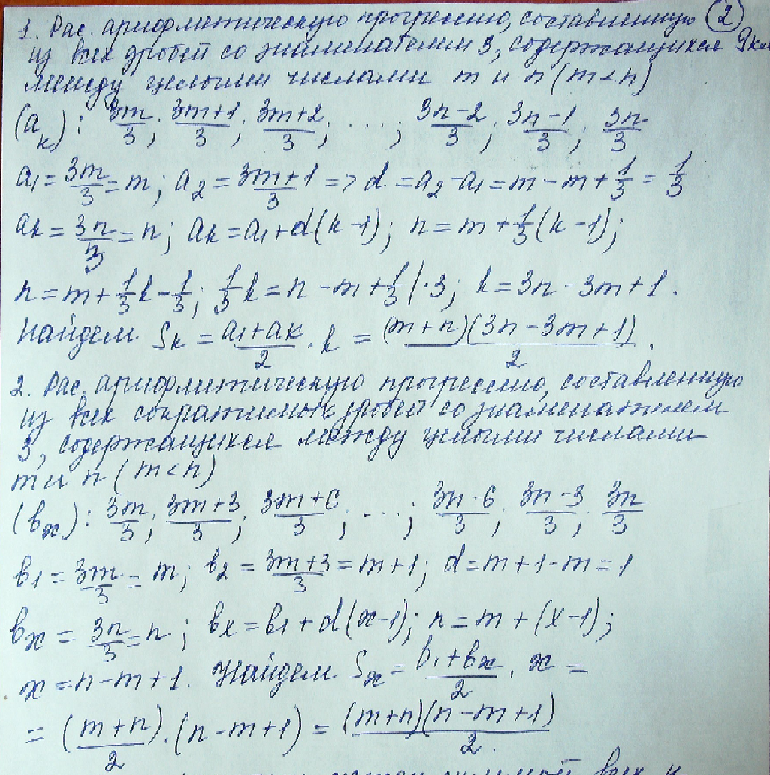 1. Рас. арифметическую прогрессию, составленную (2)
из всех дробей со знаменателем 3, содержащихся 9кл
между целыми числами m и n (m < n)
(aₖ): 3m/3; 3m+1/3; 3m+2/3; ....; 3n-2/3; 3n-1/3; 3n/3
a₁ = 3m/3 = m; a₂ = 3m+1/3 => d = a₂ - a₁ = m - m + 1/3 = 1/3
aₖ = 3n/3 = n; aₖ = a₁ + d(k-1); n = m + 1/3(k-1);
n = m + 1/3k - 1/3; 1/3k = n - m + 1/3 |·3; k = 3n - 3m + 1.
Найдем Sₖ = a₁+aₖ/2 · k = (m+n)(3n-3m+1)/2.
2. Рас. арифметическую прогрессию, составленную
из всех сократимых дробей со знаменателем
3, содержащихся между целыми числами
m и n (m < n)
(bₓ): 3m/3; 3m+3/3; 3m+6/3; ...; 3n-6/3; 3n-3/3; 3n/3
b₁ = 3m/3 = m; b₂ = 3m+3/3 = m+1; d = m+1-m = 1
bₓ = 3n/3 = n; bₓ = b₁ + d(x-1); n = m + (x-1);
x = n-m+1. Найдем Sₓ = b₁+bₓ/2 · x =
= (m+n)/2 · (n-m+1) = (m+n)(n-m+1)/2.